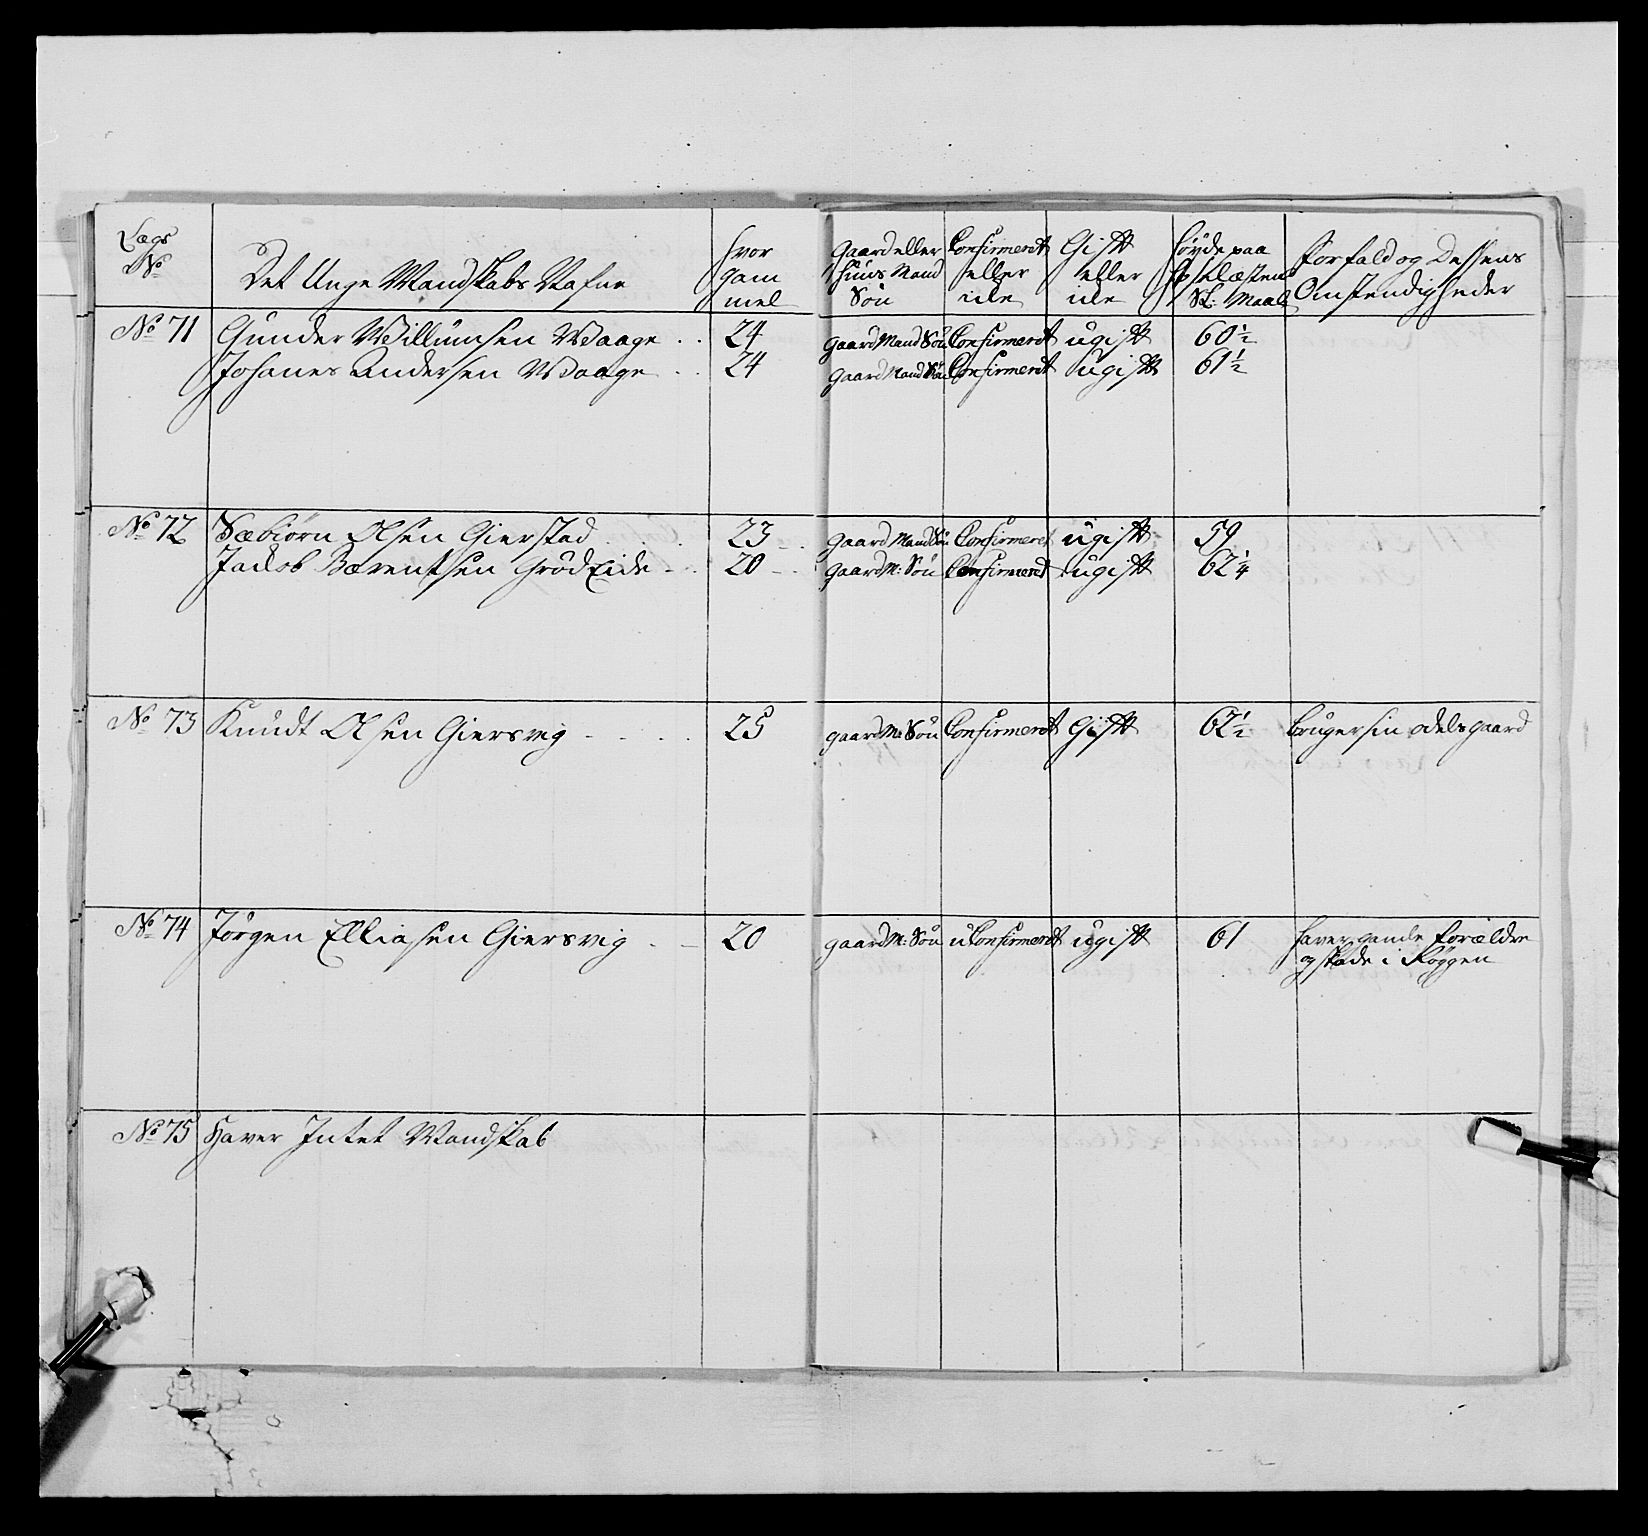 Lægs No | Det Unge Mandskabs Nafne | hvor gam mel | Gaard eller Huus Mand Søn | Confirmeret eller icke | Gift eller icke | Høyde paa Sokkelæsten St: Maal | Forfald og Dessens Omstendigheder
No 71 Gunder Willumsen Waage . . 24 gaard Mand Søn Confirmeret ugift 60½
Johanes Andersen Waage . . 24 gaard Mand Søn Confirmeret ugift 61½
No 72 Sæbiørn Olsen Gierstad . . . 23 gaard Mand Søn Confirmeret ugift 59
Jacob Bærentsen Grødeide . . 20 gaard M: Søn Confirmeret ugift 62¼
No 73 Knudt Olsen Giersvig . . . . 25 gaard M: Søn Confirmeret Gift 62½ bruger sin odels gaard
No 74 Jørgen Elliasen Giersvig . . 20 gaard M: Søn uConfirmeret ugift 61 haver gamle forældre
og skade i Røggen
No 75 Haver Intet Mandskab